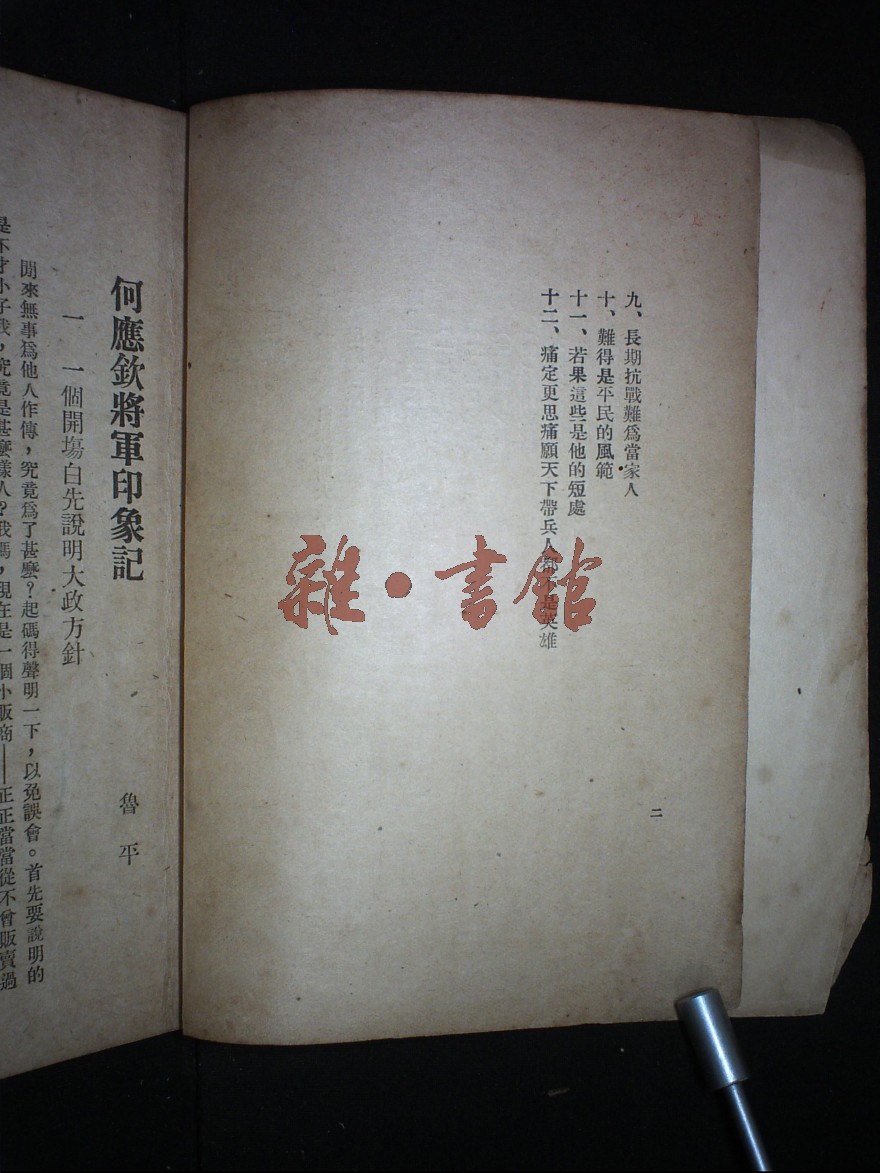 九、長期抗戰難爲當家人
十、難得是平民的風範
十一、若果這些是他的短處
十二、痛定更思痛願天下帶兵人都不是英雄
二
雜·書館
何應欽將軍印象記
魯平
一 一個開塲白先說明大政方針
閒來無事爲他人作傳，究竟爲了甚麽？起碼得聲明一下，以免誤會。首先要說明的
是不才小子我，究竟是甚麽樣人？我嗎，現在是一個小販商——正正當當從不曾販賣過